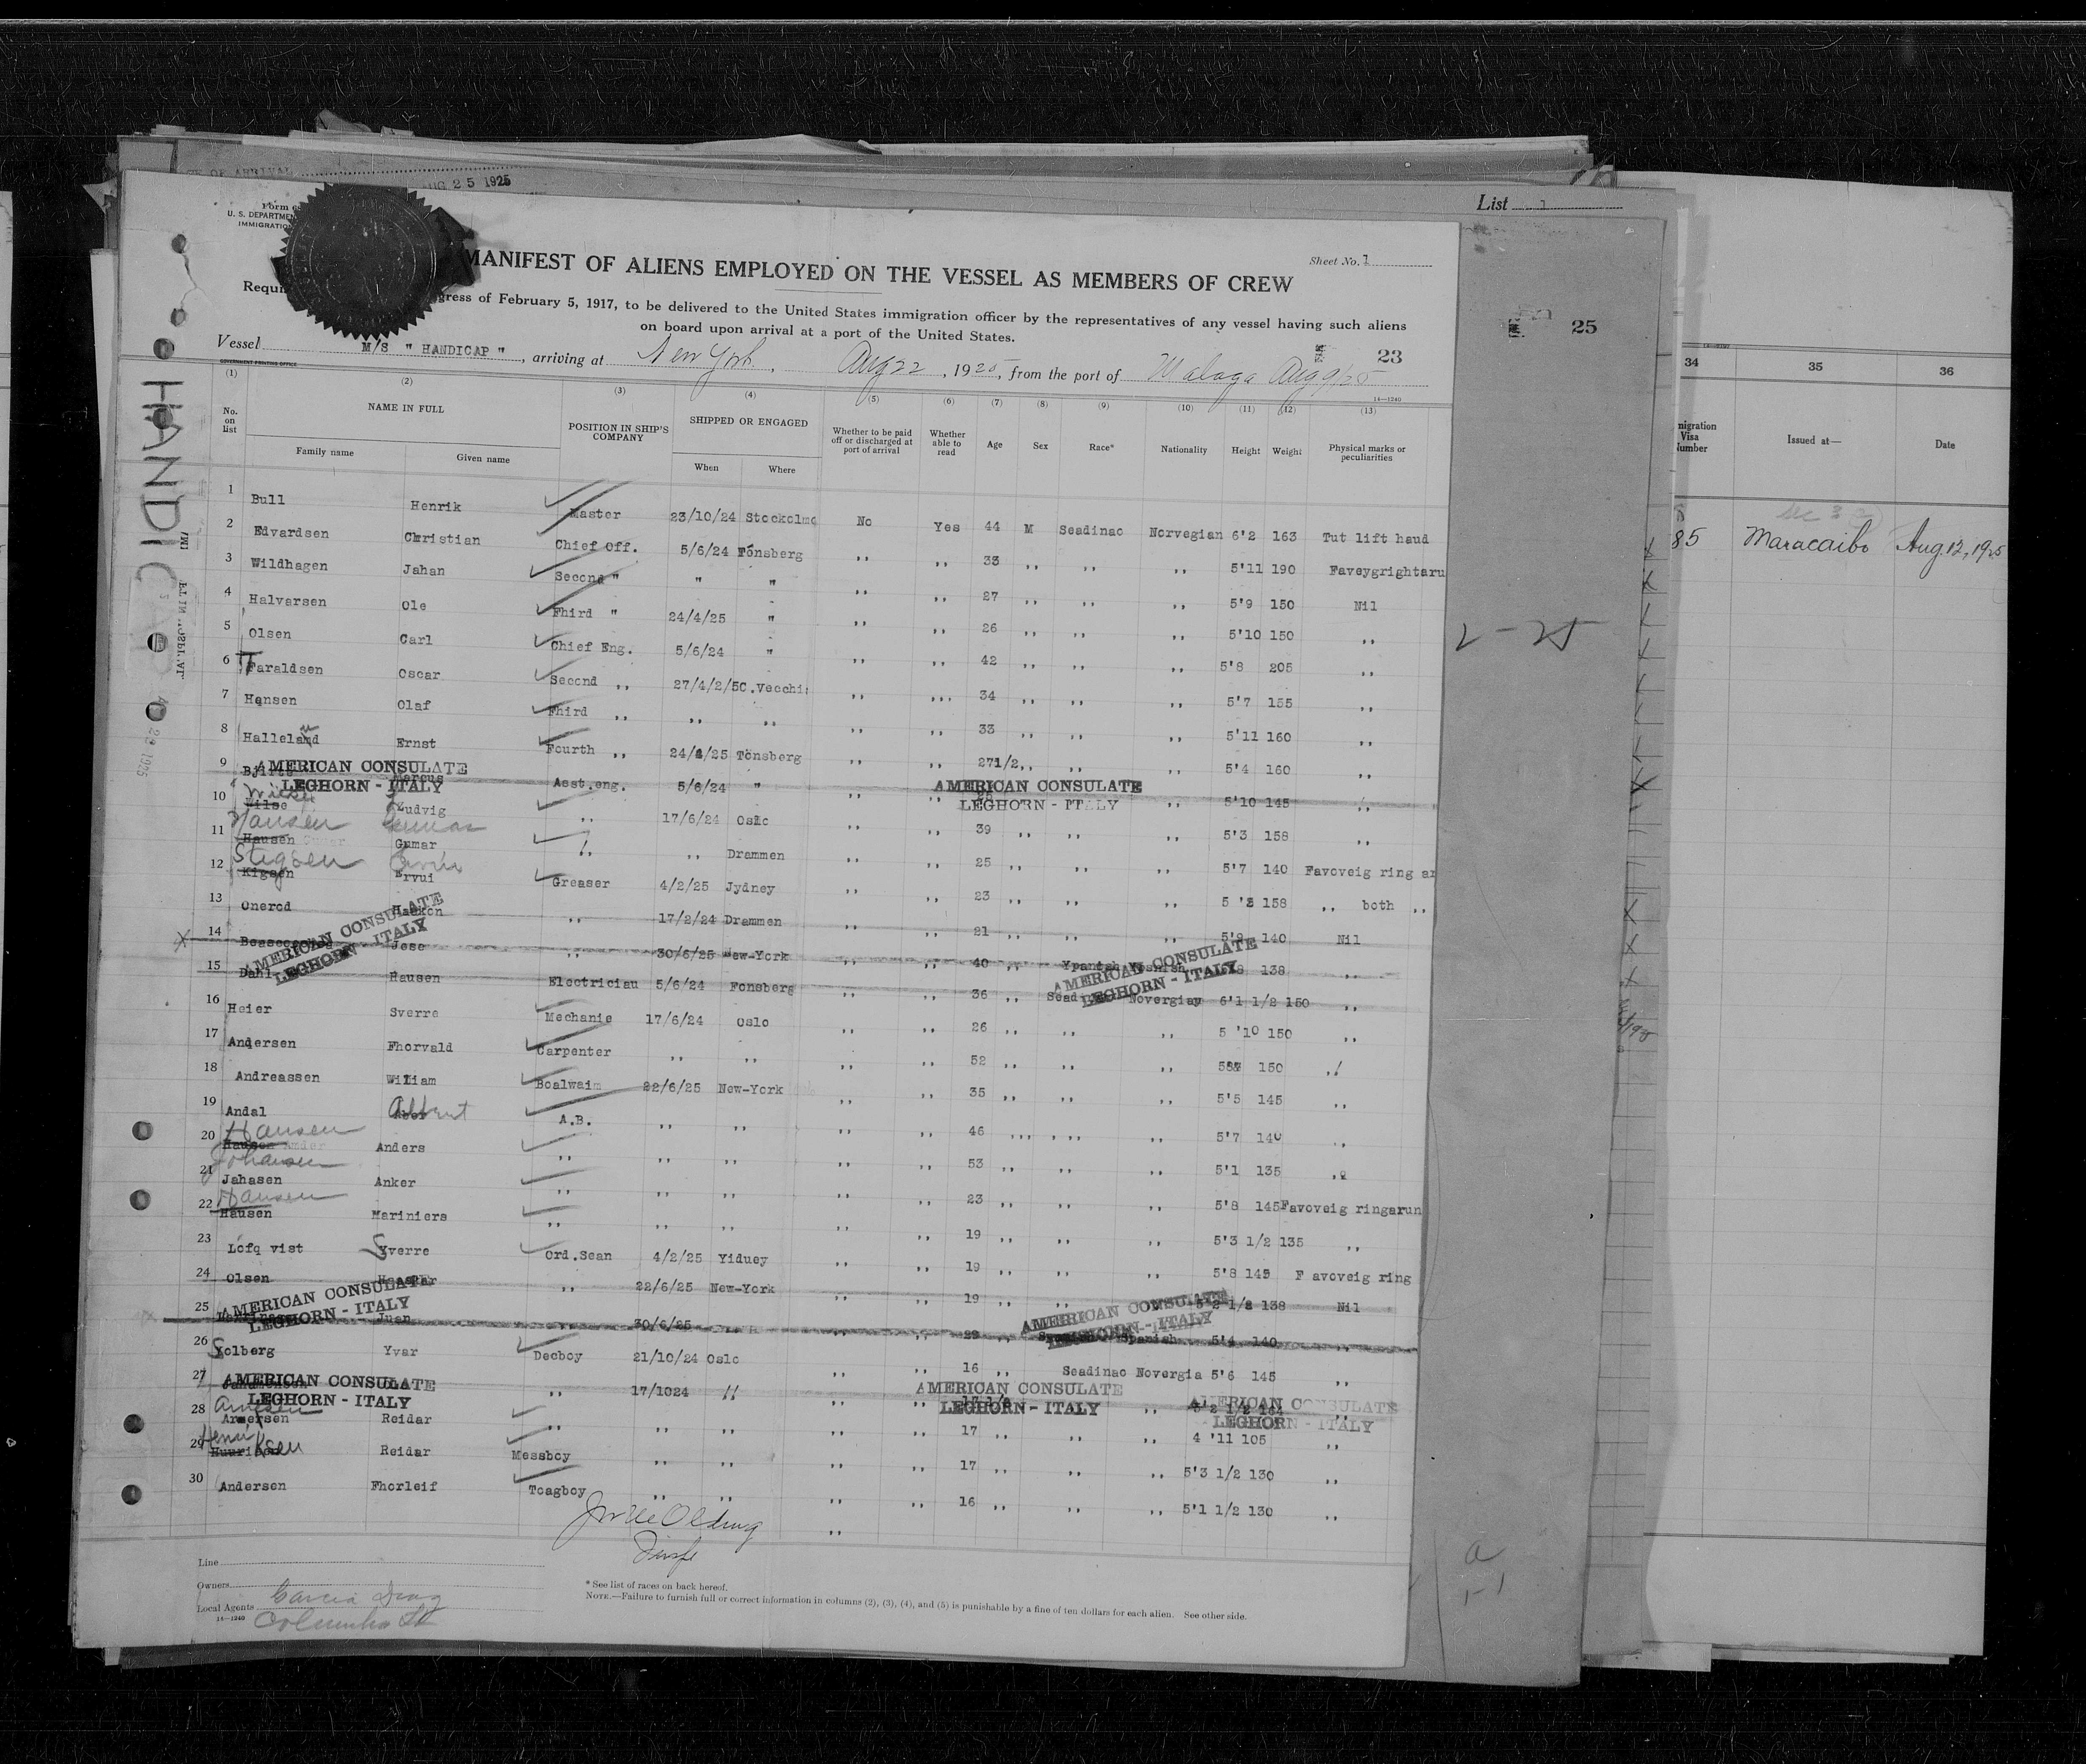 AUG 25 1925
List 1
U. S. DEPARTMEN
IMMIGRATIO
MANIFEST OF ALIENS EMPLOYED ON THE VESSEL AS MEMBERS OF CREW
Sheet No. 1
gress of February 5, 1917, to be delivered to the United States immigration officer by the representatives of any vessel having such aliens
on board upon arrival at a port of the United States.
25
23
Vessel M/S " HANDICAP " , arriving at New York. , Aug 22 , 1925, from the port of Malaga Aug 9/25
GOVERNMENT PRINTING OFFICE
14—1240
HANDICAP
(1) (2) (3) (4) (5) (6) (7) (8) (9) (10) (11) (12) (13)
No. on list
NAME IN FULL
Family name Given name
POSITION IN SHIP'S COMPANY
SHIPPED OR ENGAGED
When Where
Whether to be paid off or discharged at port of arrival
Whether able to read
Age Sex Race* Nationality Height Weight
Physical marks or peculiarities
34 35 36
migration Visa Number
Issued at—
Date
85 Maracaibo Aug. 12, 1925
1 Bull Henrik Master 23/10/24 Stockolmo No Yes 44 M Seadinao Norvegian 6'2 163 Tut lift haud
2 Edvardsen Christian Chief Off. 5/6/24 Fönsberg ,, ,, 33 ,, ,, ,, 5'11 190 Faveygrightaru
3 Wildhagen Jahan Second " " " ,, ,, 27 ,, ,, ,, 5'9 150 Nil
4 Halvarsen Ole Fhird " 24/4/25 " ,, ,, 26 ,, ,, ,, 5'10 150 ,,
5 Olsen Carl Chief Eng. 5/6/24 " ,, ,, 42 ,, ,, ,, 5'8 205 ,,
6 Faraldsen Oscar Second ,, 27/4/2/5 C.Vecchi ,, ,, 34 ,, ,, ,, 5'7 155 ,,
7 Hansen Olaf Fhird ,, ,, ,, ,, ,, 33 ,, ,, ,, 5'11 160 ,,
8 Halleland Ernst Fourth ,, 24/4/25 Tönsberg ,, ,, 27 1/2 ,, ,, ,, 5'4 160 ,,
9 Marcus Asst.eng. 5/6/24 " ,, ,, ,, 5'10 145 ,,
AMERICAN CONSULATE
LEGHORN - ITALY
AMERICAN CONSULATE
LEGHORN - ITALY
10 Ludvig ,, 17/6/24 Oslo 39 ,, ,, ,, 5'3 158 ,,
Hansen Gunnar
11 Hausen Gumar ,, ,, Drammen ,, 25 ,, ,, ,, 5'7 140 Favoveig ring ar
Stigsen
12 Kigsen Ervui Greaser 4/2/25 Jydney ,, 23 ,, ,, ,, 5 '8 158 ,, both ,,
13 Onerod Haakon ,, 17/2/24 Drammen ,, 21 ,, ,, ,, 5'9 140 Nil
14 Jose ,, 30/6/25 New-York ,, ,, 40 ,, 138 ,,
AMERICAN CONSULATE
LEGHORN - ITALY
AMERICAN CONSULATE
LEGHORN - ITALY
15 Dahl Hausen Electriciau 5/6/24 Fonsberg ,, ,, 36 ,, Novergiay 6'1 1/2 150 ,,
16 Heier Sverre Mechanie 17/6/24 Oslo ,, ,, 26 ,, ,, ,, 5 '10 150 ,,
17 Andersen Fhorvald Carpenter ,, ,, ,, ,, 52 ,, ,, ,, 150 ,,
18 Andreassen William Boalwaim 22/6/25 New-York ,, ,, 35 ,, ,, ,, 5'5 145 ,,
19 Andal Albert A.B. ,, ,, ,, ,, 46 ,, ,, ,, 5'7 140 ,,
Hansen
20 Hausen Anders ,, ,, ,, ,, ,, 53 ,, ,, ,, 5'1 135 ,,
Johansen
21 Jahasen Anker ,, ,, ,, ,, ,, 23 ,, ,, ,, 5'8 145 Favoveig ringarun
Hansen
22 Hausen Mariniers ,, ,, ,, ,, ,, 19 ,, ,, ,, 5'3 1/2 135 ,,
23 Lofq vist Syverre Ord.Sean 4/2/25 Yiduey ,, 19 ,, ,, ,, 5'8 145 F avoveig ring
24 Olsen ,, 22/6/25 New-York ,, ,, 19 ,, ,, ,, 5'2 1/2 138 Nil
AMERICAN CONSULATE
LEGHORN - ITALY
AMERICAN CONSULATE
LEGHORN - ITALY
25 Juan 30/6/25 ,, ,, 29 ,, Spanish 5'4 140 ,,
26 Solberg Yvar Decboy 21/10/24 Oslo ,, 16 ,, Seadinao Novergia 5'6 145 ,,
27 ,, 17/1024 ,, ,,
AMERICAN CONSULATE
LEGHORN - ITALY
AMERICAN CONSULATE
LEGHORN - ITALY
AMERICAN CONSULATE
LEGHORN - ITALY
28 Reidar ,, ,, ,, ,, ,, 17 ,, ,, ,, 4 '11 105 ,,
Henriksen
29 Reidar Messboy ,, ,, ,, ,, 17 ,, ,, ,, 5'3 1/2 130 ,,
30 Andersen Fhorleif Toagboy ,, ,, ,, ,, 16 ,, ,, ,, 5'1 1/2 130 ,,
Line
Owners
Local Agents Garcia Diaz
14—1240 Columbia St
* See list of races on back hereof.
NOTE.—Failure to furnish full or correct information in columns (2), (3), (4), and (5) is punishable by a fine of ten dollars for each alien. See other side.